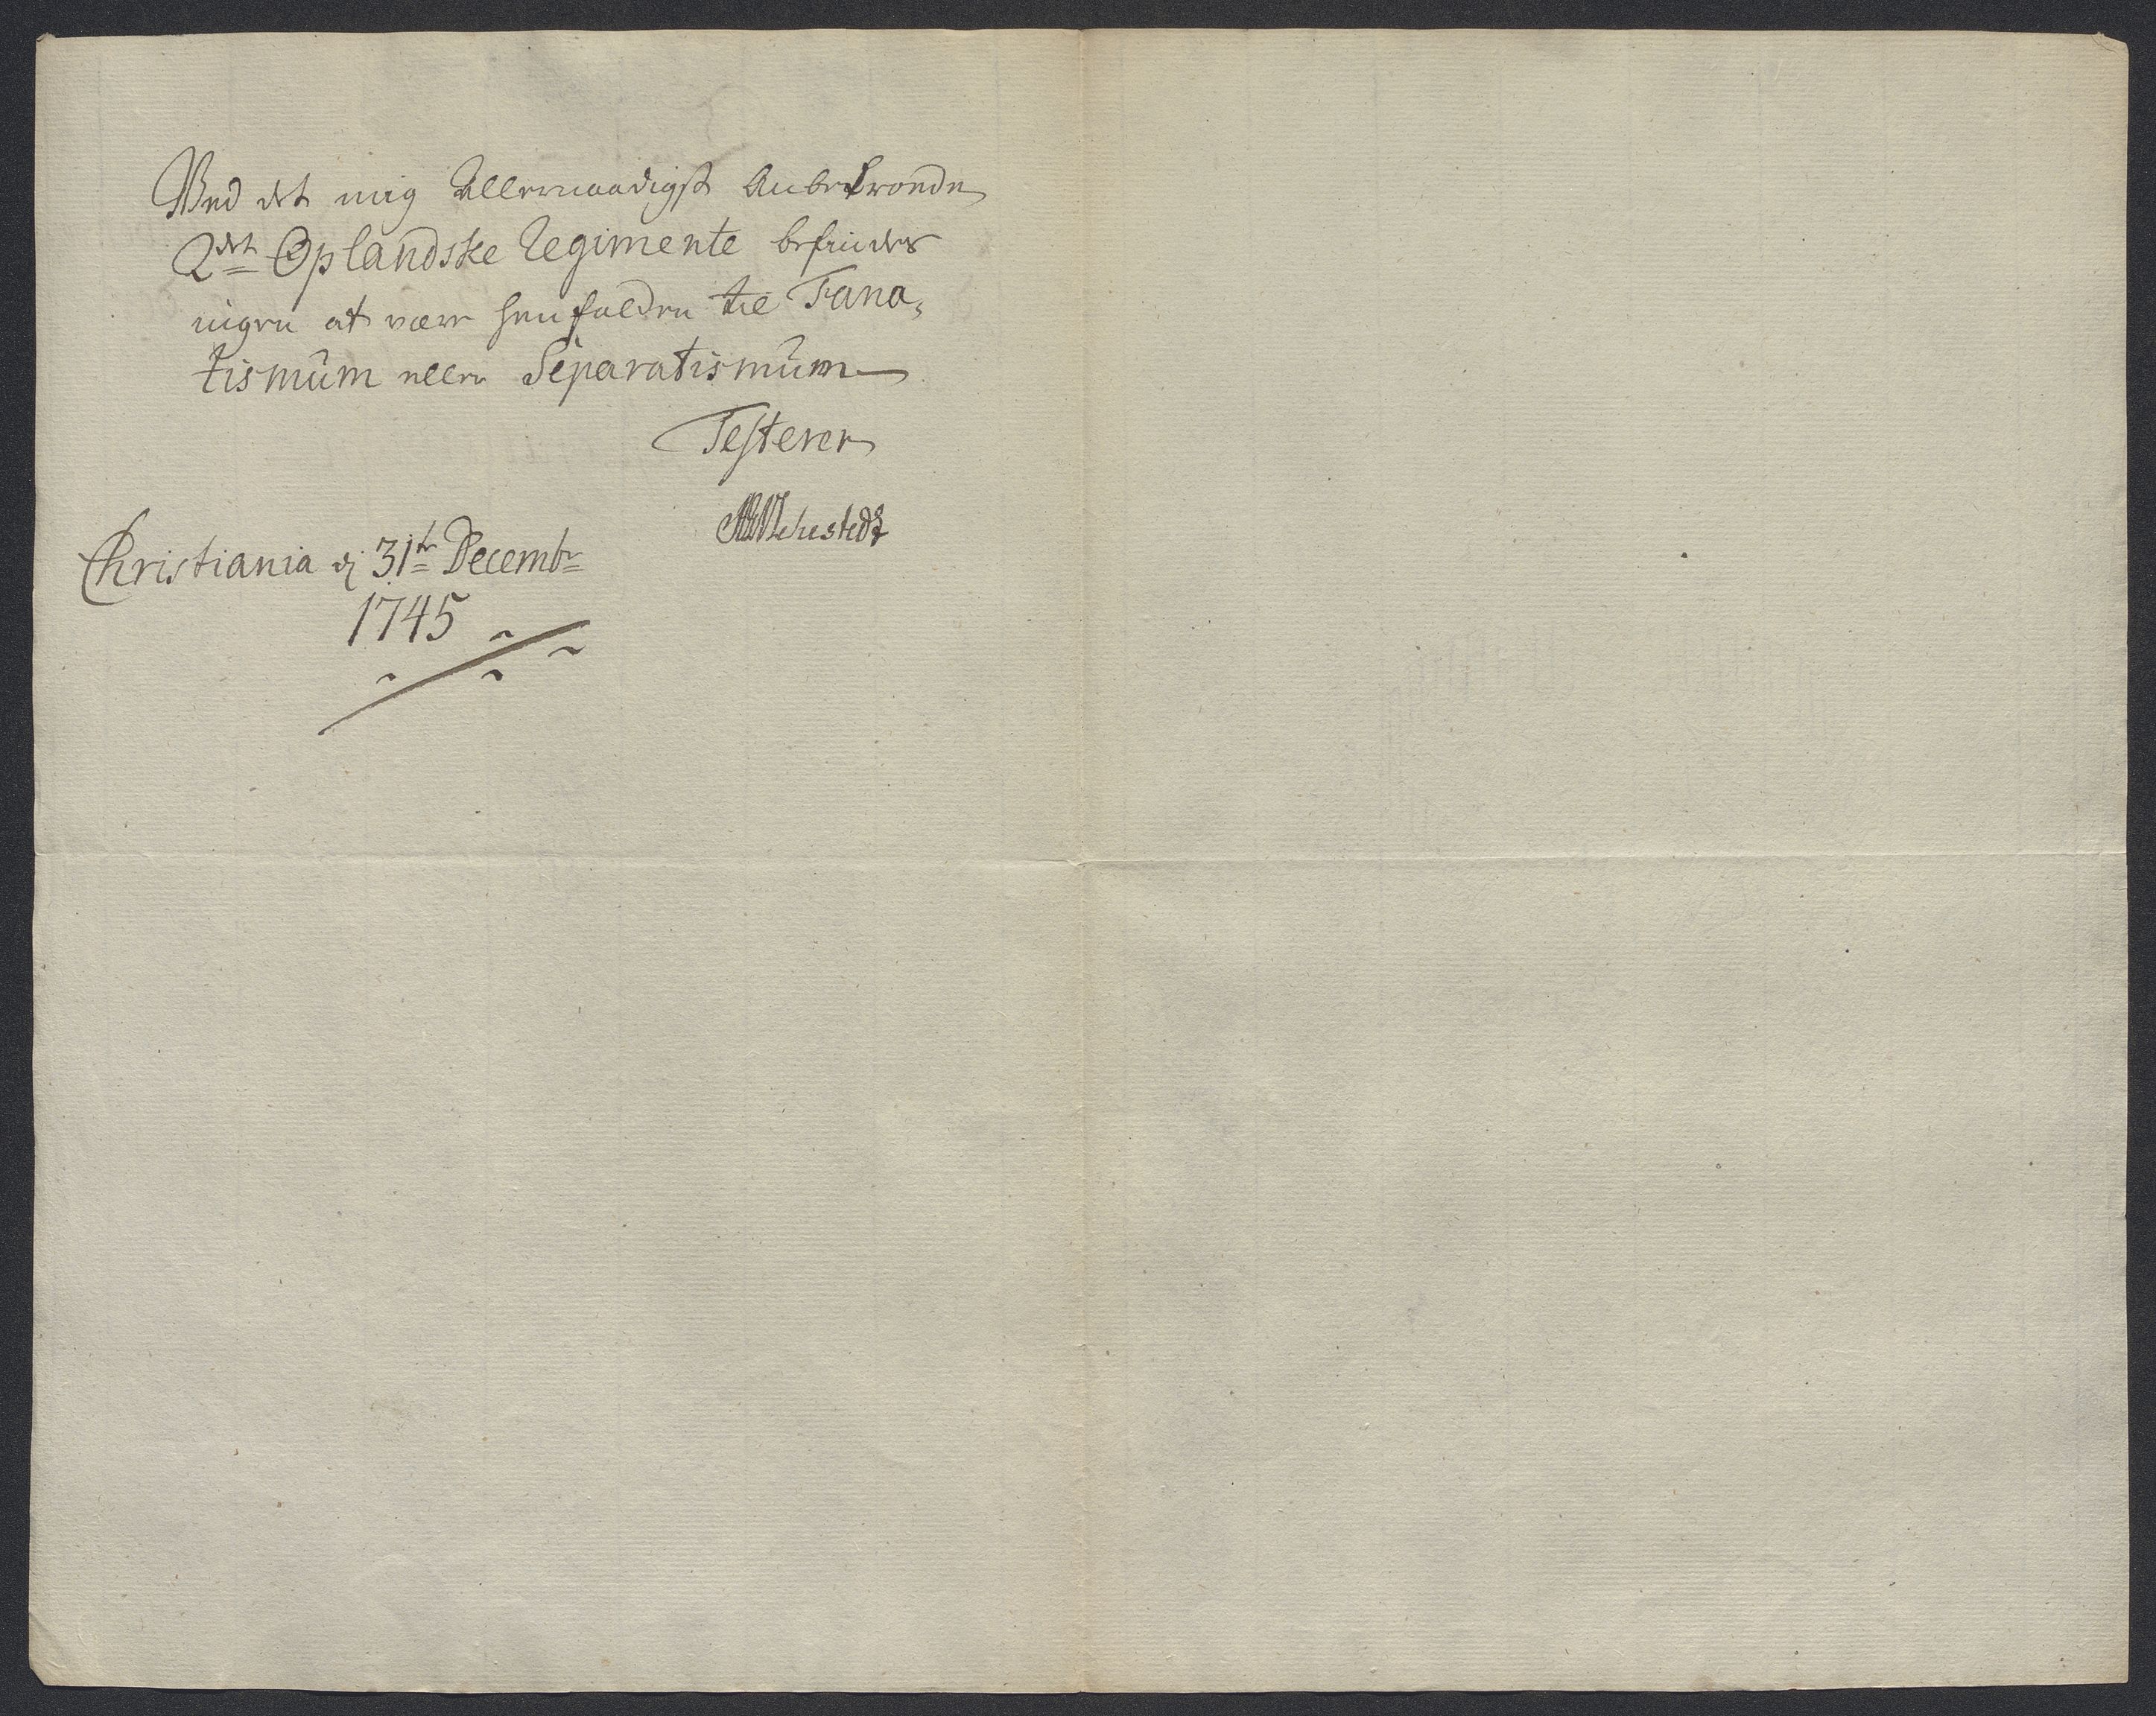 Ved det mig Allernaadigst Anbetroede
2det Oplandske Regimente befindes
ingen at være henfalden til Fana,
tismum eller Separatismum
Testerer
Christiania dj 31te Decembr
1745